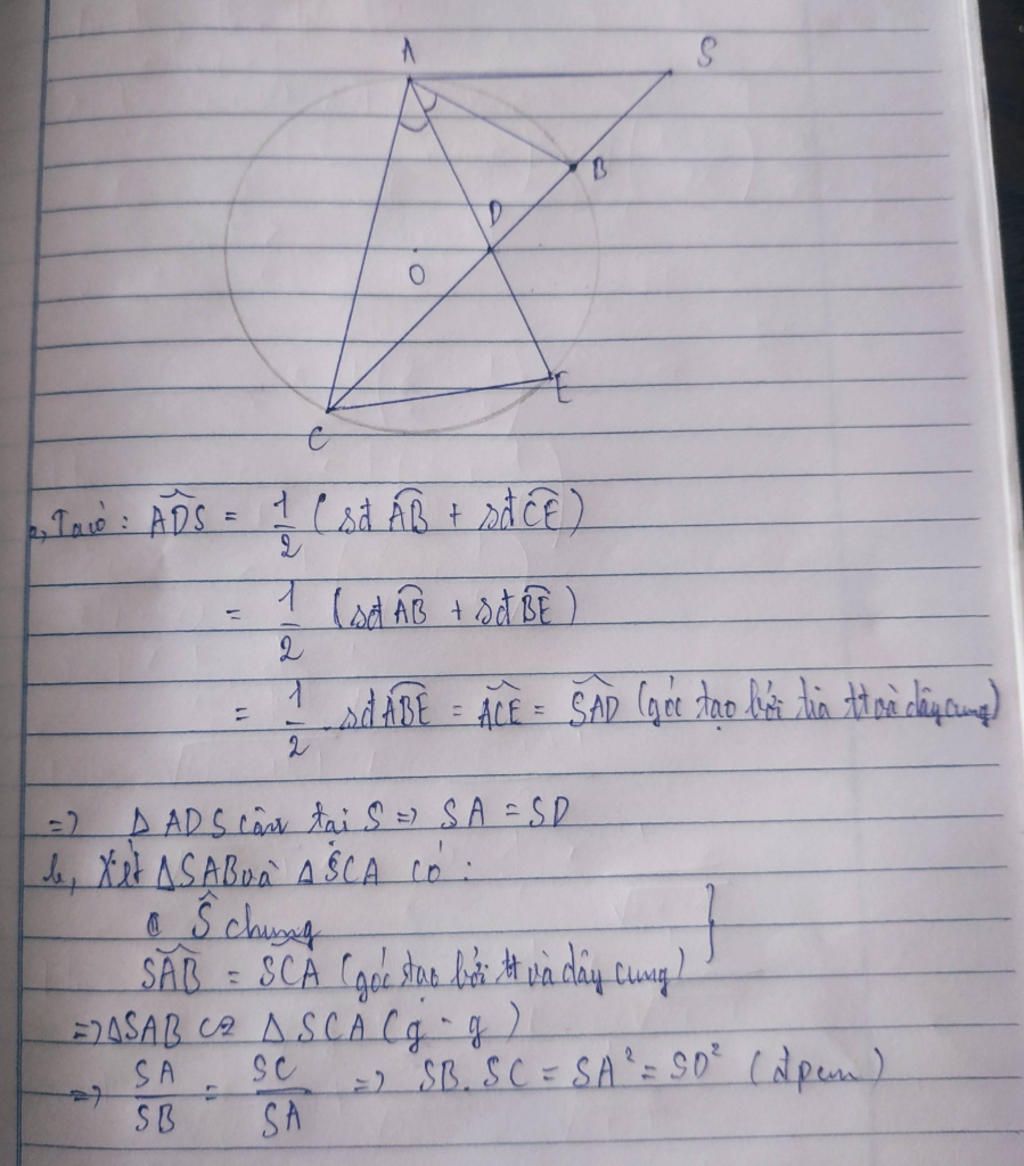 A
S
B
D
O
E
C
a, Ta có : \widehat{ADS} = \frac{1}{2} ( sđ \overset{\frown}{AB} + sđ \overset{\frown}{CE} )
= \frac{1}{2} ( sđ \overset{\frown}{AB} + sđ \overset{\frown}{BE} )
= \frac{1}{2} sđ \overset{\frown}{ABE} = \widehat{ACE} = \widehat{SAD} (góc tạo bởi tia tt và dây cung)
=> Δ ADS cân tại S => SA = SD
b, Xét ΔSAB và ΔSCA có :
\widehat{S} chung
\widehat{SAB} = \widehat{SCA} (góc tạo bởi tt và dây cung) }
=> ΔSAB ∽ ΔSCA (g - g)
=> \frac{SA}{SB} = \frac{SC}{SA} => SB. SC = SA² = SD² (đpcm)